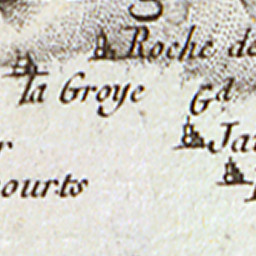 Roche de
la Groye
Gd
Jau
r
ourts